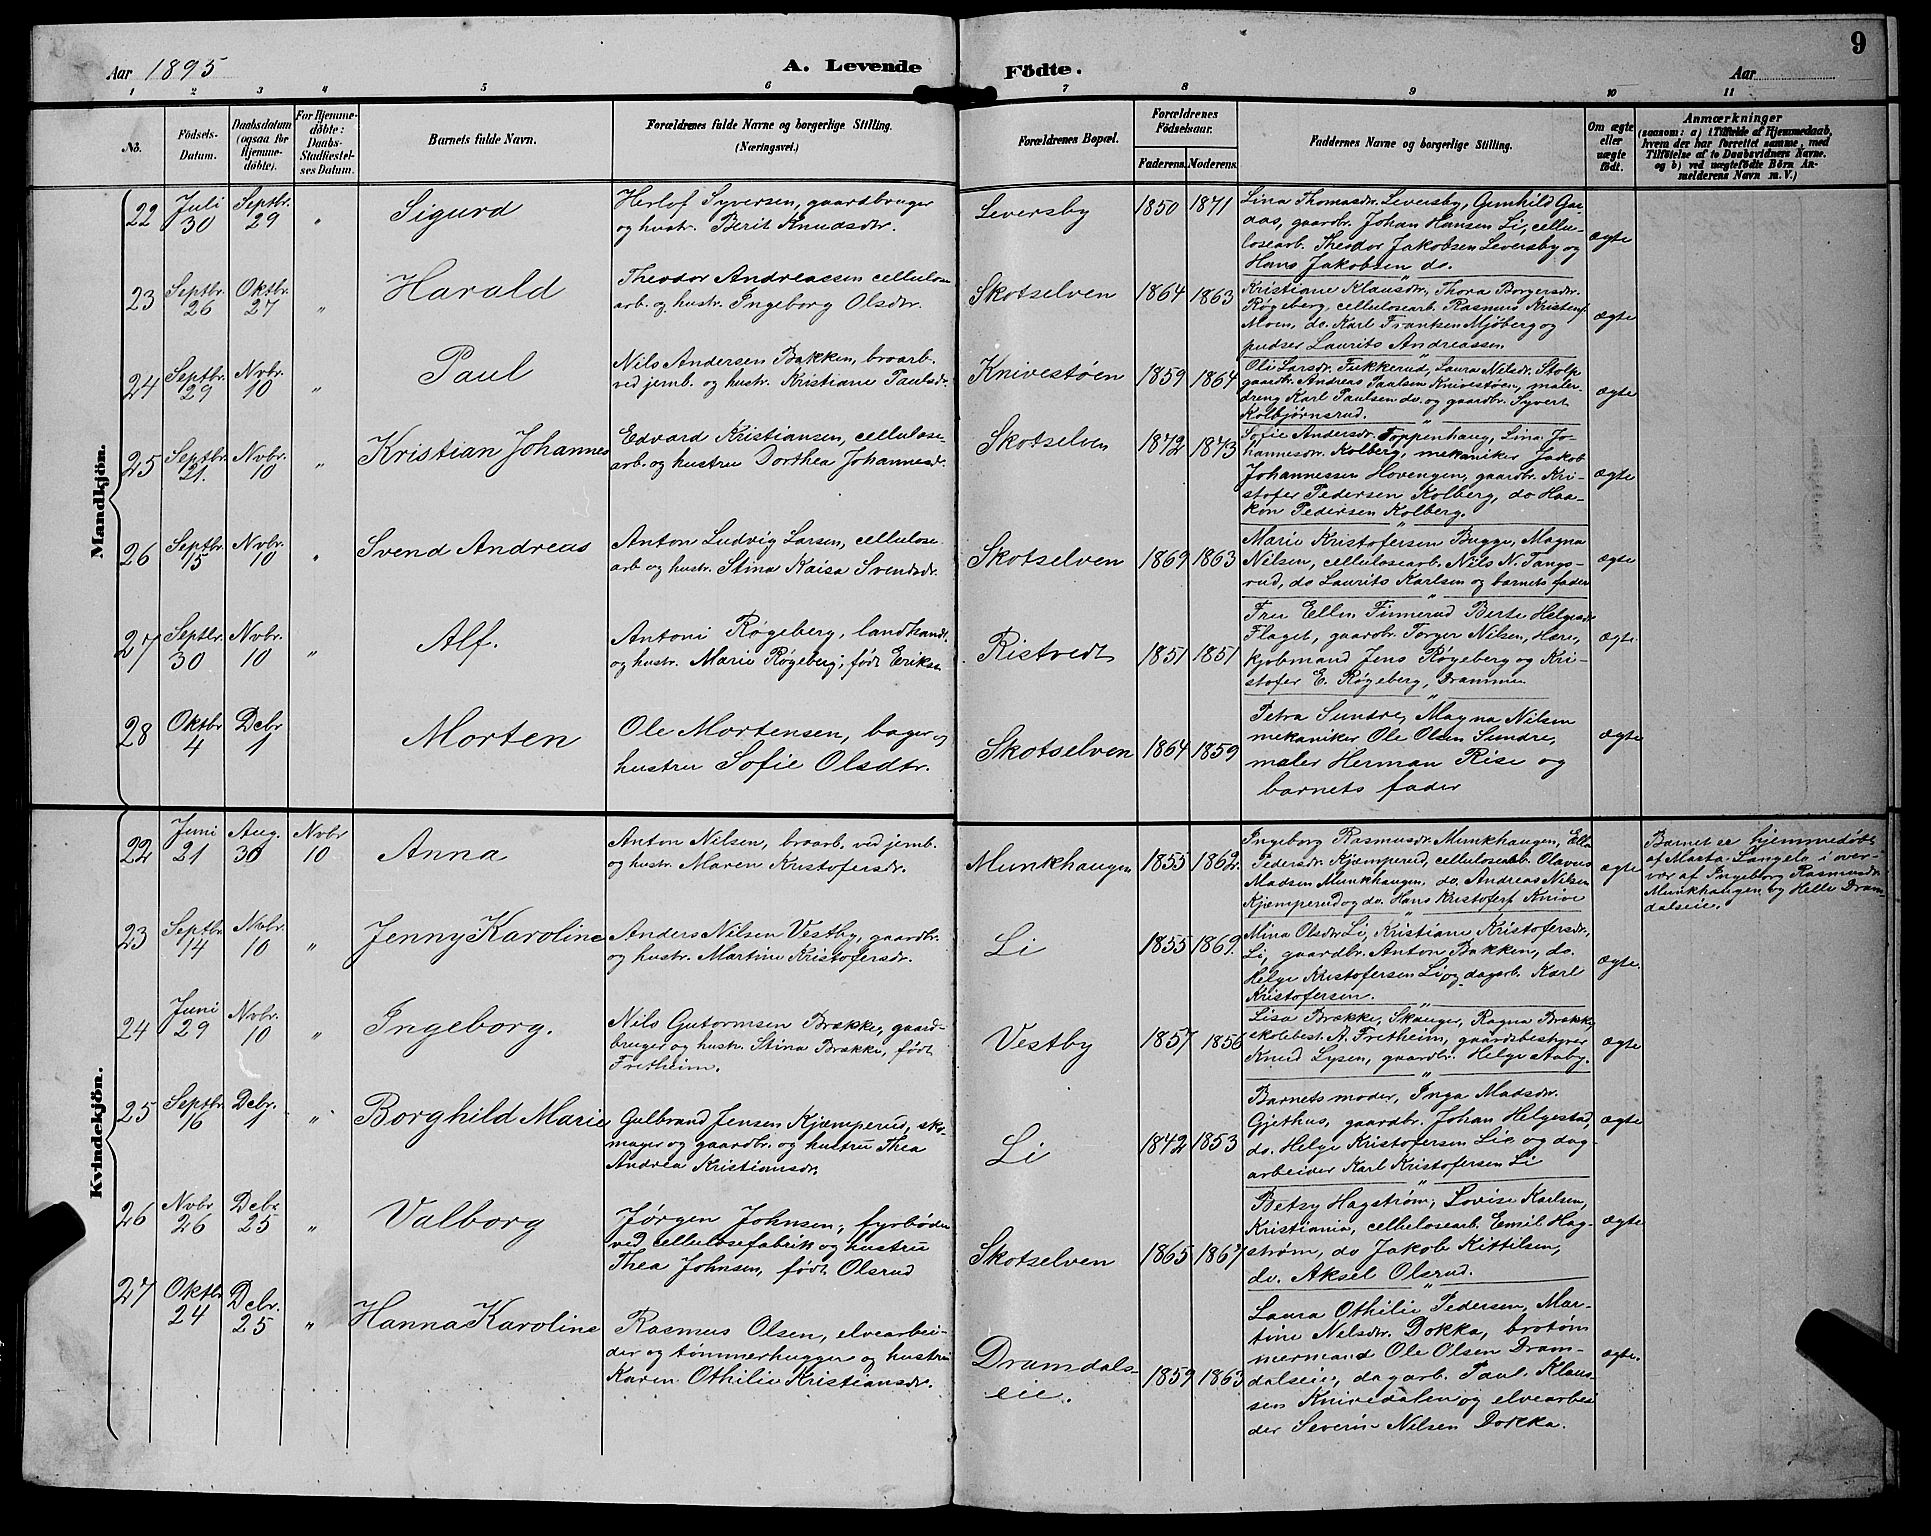 Aar 1895
A. Levende Födte.
9
Aar
1 2 3 4 5 6 7 8 9 10 11
No.
Födsels-
Datum.
Daabsdatum
(ogsaa for
Hjemme-
döbte).
For Hjemme-
döbte:
Daabs-
Stadfæstel-
ses Datum.
Barnets fulde Navn.
Forældrenes fulde Navne og borgerlige Stilling.
(Næringsvei.)
Forældrenes Bopæl.
Forældrenes
Födselsaar.
Faderens. Moderens.
Faddernes Navne og borgerlige Stilling.
Om ægte
eller
uægte
födt.
Anmærkninger
(saasom: a) i Tilfælde af Hjemmedaab,
hvem der har forrettet samme, med
Tilföielse af to Daabsvidners Navne,
og b) ved uægtefödte Börn An-
melderens Navn m. V.)
Mandkjön.
22 Juli 30 Septbr. 29 " Sigurd
Herlof Syversen, gaardbruger
og hustr. Berit Knudsdr.
Leversby 1850 1871
Lina Thomasdr. Leversby, Gunhild Gaa-
aas, gaardbr. Johan Hansen Li, cellu-
losearb. Theodor Jakobsen Leversby og
Hans Jakobsen do.
ægte
23 Septbr. 26 Oktbr. 27 " Harald
Theodor Andreassen cellulose
arb. og hustr. Ingeborg Olsdtr.
Skotselven 1864 1863
Kristiane Klausdr., Thora Borgersdr.
Røgeberg, cellulosearb. Rasmus Kristens.
Moen, do. Karl Frantsen Mjøberg og
pudser Laurits Andreassen
ægte
24 Septbr. 29 Novbr. 10 " Paul
Nils Andersen Bakken, broarb.
ved jernb. og hustr. Kristiane Paulsdr.
Knivestøen 1859 1864
Oli Larsdr. Fukkerud, Laura Nilsdr. Stolp
gaardbr. Andreas Paulsen Knivestøen, maler-
dreng Karl Paulsen do. og gaardbr. Syvert
Kolbjørnsrud.
ægte
25 Septbr. 21. Novbr. 10 " Kristian Johannes
Edvard Kristiansen, cellulose-
arb. og hustru Dorthea Johannesdr.
Skotselven 1872 1873
Sofie Andersdr. Toppenhaug, Lina Jo-
hannesdr. Kolberg, mekaniker Jakob
Johannessen Hovengen, gaardbr. Kri-
stofer Pedersen Kolberg, do Haa-
kon Pedersen Kolberg.
ægte
26 Septbr. 15 Novbr. 10 " Svend Andreas
Anton Ludvig Larsen, cellulose-
arb og hustr. Stina Kaisa Svendsdr.
Skotselven 1869 1863
Marie Kristofersen Bugge, Magna
Nilsen, cellulosearb. Nils N. Tangs-
rud, do Laurits Karlsen og barnets fader
ægte
27 Septbr. 30 Novbr. 10 " Alf.
Antoni Røgeberg, landhandl.
og hustr. Marie Røgeberg, født Eriksen
Ristvedt 1851 1851
Fru Ellen Finnerud Berte Helgesdr
Flaget, gaardbr. Torger Nilsen, Hære,
kjøbmand Jens Røgeberg og Kri-
stofer E. Røgeberg, Drammen
ægte
28 Oktbr 4 Debr. 1 Morten
Ole Mortensen, bager og
hustru Sofie Olsdtr.
Skotselven 1864 1859
Petra Sundre, Magna Nilsen
mekaniker Ole Olsen Sundre,
maler Herman Rise og
barnets fader
ægte
Kvindekjön.
22 Juni 21 Aug. 30 Novbr 10 Anna
Anton Nilsen, broarb. ved jernb.
og hustr. Maren Kristofersdr.
Munkhaugen 1855 1862
Ingeborg Rasmusdr. Munkhaugen, Ella
Pedersdr. Kjæmperud, cellulosearb. Olavus
Madsen Munkhaugen, do. Andreas Nilsen
Kjæmperud og do. Hans Kristofers. Knive
ægte
Barnet er hjemmedøbt
af Marta Langelo i over-
vær af Ingeborg Rasmusdr.
Munkhaugen og Helle Dram-
dalseie.
23 Septbr 14 Novbr. 10 " Jenny Karoline
Anders Nilsen Vestby, gaardbr.
og hustr. Martine Kristofersdr.
Li 1855 1869.
Mina Olsdtr Li, Kristiane Kristofersdr.,
Li, gaardbr. Anton Bakken, do.
Helge Kristofersen Li og dagarb. Karl
Kristofersen.
ægte.
24 Juni 29 Novbr. 10 " Ingeborg.
Nils Gutormsen Brække, gaard-
bruger og hustr. Stina Brække, født
Fretheim.
Vestby 1857 1856
Lisa Brække, Skauger, Ragna Brække,
skolebest. A. Fretheim, gaardsbestyrer
Knud Lysen, gaardbr. Helge Aaby.
ægte
25 Septbr. 16 Debr. 1 " Borghild Marie
Gulbrand Jensen Kjæmperud, sko-
mager og gaardbr. og hustru Thea
Andrea Kristiansdr.
Li 1842 1853
Barnets moder, Inga Madsdr.
Gjethus, gaardbr. Johan Helgestad,
do. Helge Kristofersen Lie og dag-
arbeider Karl Kristofersen Li
ægte
26 Novbr. 26 Debr. 25 " Valborg
Jørgen Johnsen, fyrbøder
ved cellulosefabrik og hustru
Thea Johnsen, født Olsrud
Skotselven 1865 1867
Betsy Hagstrøm, Lovise Karlsen,
Kristiania, cellulosearb. Emil Hag-
strøm, do Jakob Kittilsen,
do. Aksel Olsrud.
ægte
27 Oktbr. 24 Debr. 25 " Hanna Karoline
Rasmus Olsen, elvearbei-
der og tømmerhugger og hustru
Karen Othilie Kristiansdr.
Dramdals-
eie. 1859 1863
Laura Othilie Pedersen, Mar-
tine Nelsdtr. Dokka, brotøm
mermand Ole Olsen Dram-
dalseie, dagarb. Paul Klaus-
sen Knivedalen og elvearbei
der Severin Nilsen Dokka.
ægte.